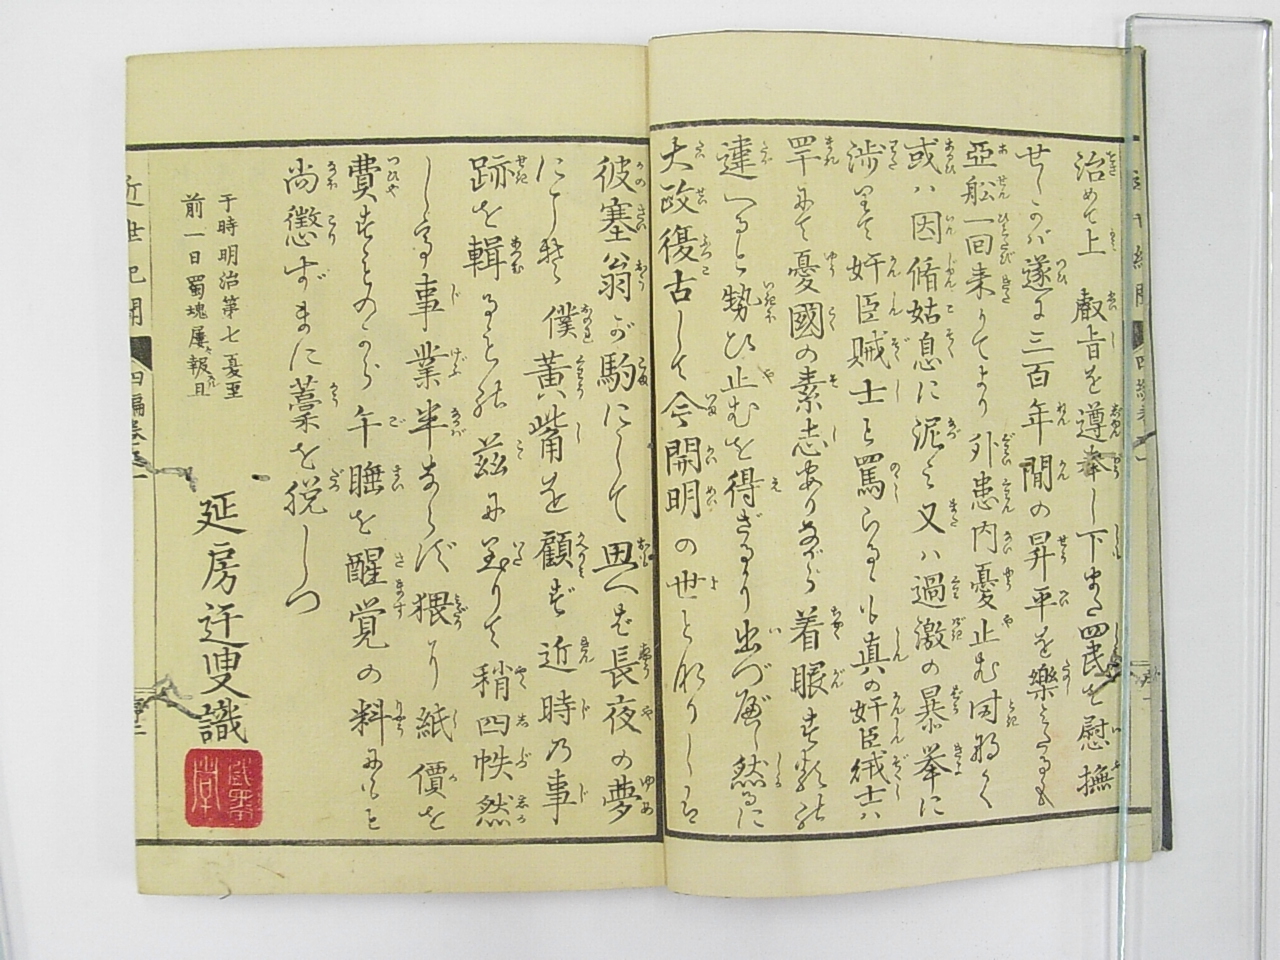 治めて上 叡旨を遵奉し下また四民を慰撫
せしかバ遂に三百年間の昇平を樂とたるも
亞舩一回来りてより外患内憂止む時なく
或ハ因循姑息に泥ミ又ハ過激の暴挙に
渉りて奸臣賊士と罵らるゝも真の奸臣賊士ハ
罕にて憂國の素志ありながら着眼
違へると勢ひ止むを得ざるに出づ然るに
大政復古して今開明の世となりしハ
彼塞翁が駒にして思へば長夜の夢
僕黄觜を顧ず近時の事
跡を輯 茲に至りて稍四帙然
し 事業半ならず猥り紙價を
費すものから午睡を醒覚の料にも
尚懲ずまに藁を脱しつ
于時明治第七夏至
前一日蜀魂屡報且
延房迂叟識
近世紀聞 四編巻之一